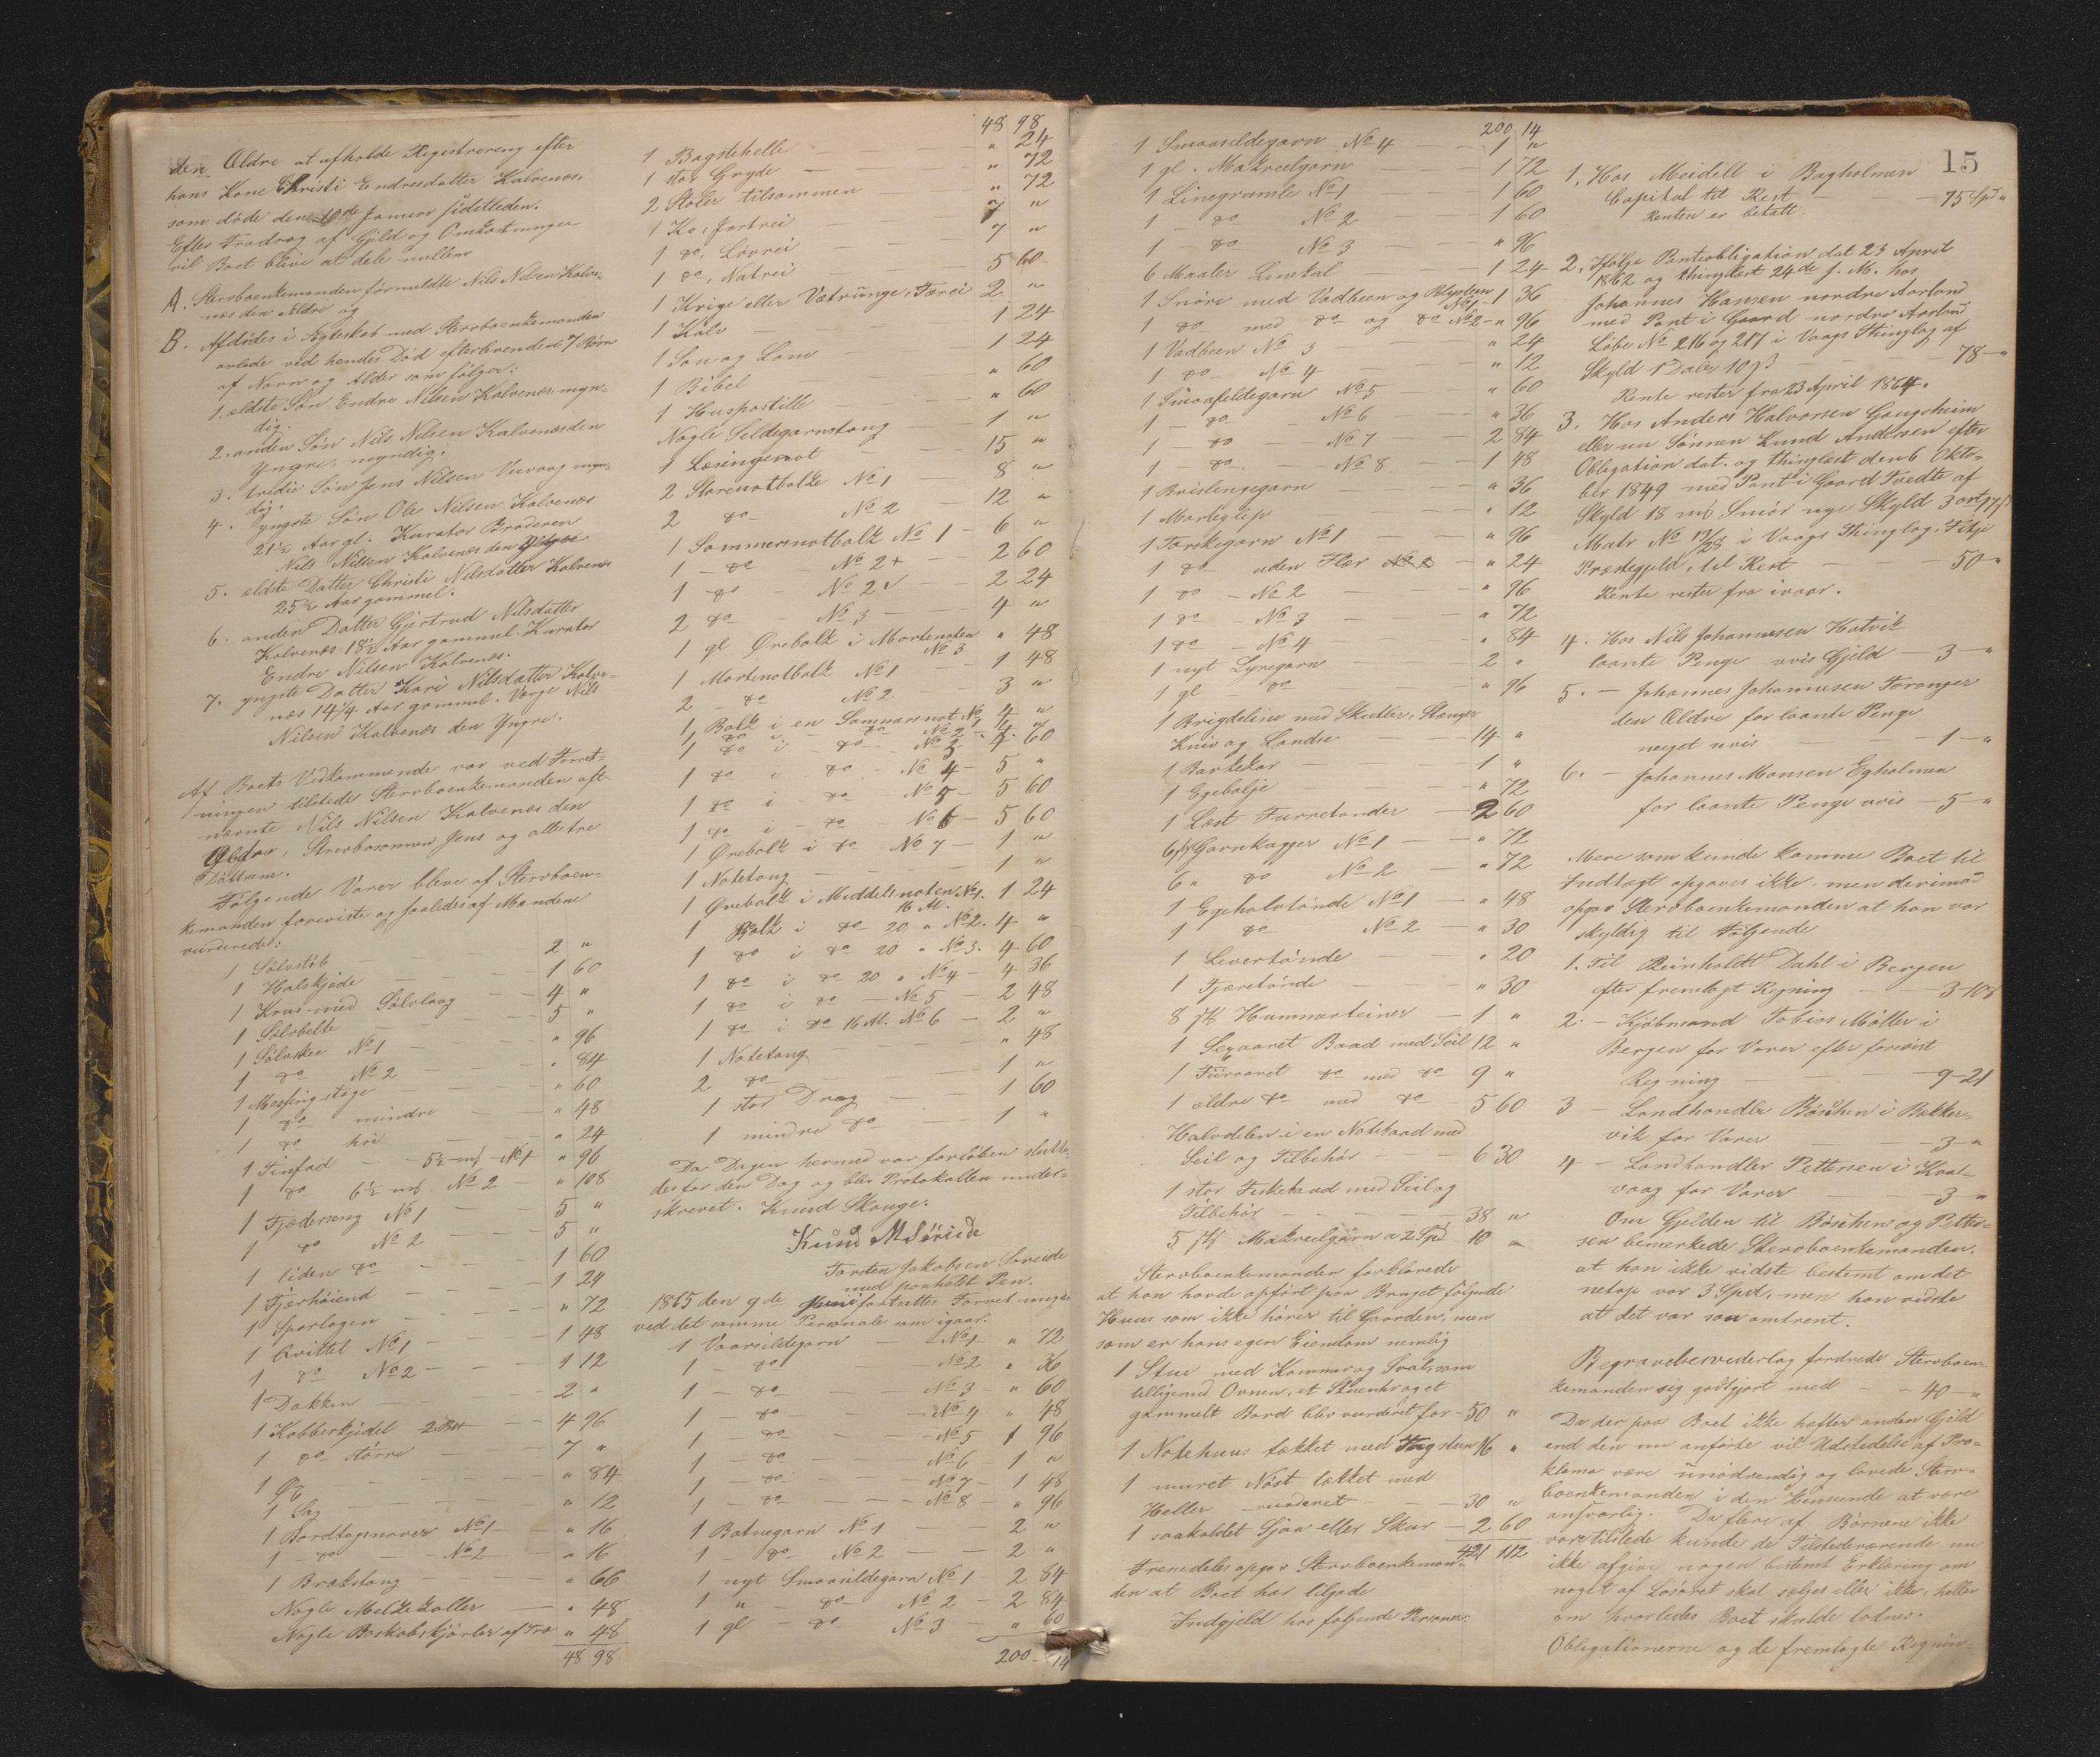 den Ældre at afholde Registrering efter
hans Kone Christi Endresdatter Kalvenæs,
som døde den 10de Januar sidstleden.
Efter Fradrag af Gjæld og Omkostninger
vil Boet blive at dele mellem
A. Stervboenkemanden førmeldte Nils Nilsen Kalve-
næs den Ældre og
B. Afdødes i Ægteskab med Stervboenkemanden
avlede ved hendes Død efterlevende 7 Børn
af Navn og Alder som følger:
1. ældste Søn Endre Nilsen Kalvenæs, myn-
dig.
2. anden Søn Nils Nilsen Kalvenæs den
Yngre, myndig.
3. tredie Søn Jens Nilsen Vervaag myn-
dig.
4. yngste Søn Ole Nilsen Kalvenæs
21½ Aar gl. Kurator Broderen
Nils Nilsen Kalvenæs den Yngre
5. ældste Datter Christi Nilsdatter Kalvenæs
25½ Aar gammel.
6. anden Datter Gjertrud Nilsdatter
Kalvenæs 18½ Aar gammel. Kurator
Endre Nilsen Kalvenæs.
7. yngste Datter Kari Nilsdatter Kalve-
næs 14¼ Aar gammel. Værge Nils
Nilsen Kalvenæs den Yngre.
Af Boets Vedkommende var ved Forret-
ningen tilstede Stervboenkemanden oft-
nævnte Nils Nilsen Kalvenæs den
Ældre, Stervbosønnen Jens og alle tre
Døttrene.
Følgende Varer bleve af Stervboen-
kemanden foreviste og saaledes af Mændene
vurderede:
1 Sølvstøb - - 2 "
1 Halskjæde - - 1 60
1 Krus med Sølvlaag - - 4 "
1 Sølvbelte - - 5 "
1 Sølvskee No 1 - - " 96
1 do No 2 - - " 84
1 Messingstage - - " 60
1 do mindre - - " 48
1 do høi - - " 24
1 Tinfad - 5½ mþ No 1 " 96
1 do 6½ mþ No 2 - " 108
1 Fjæderseng No 1 - 5 "
1 do No 2 - - 5 "
1 liden do - - 1 60
1 Fjærhøiend - - 1 24
1 Sparlagen - - " 72
1 Kvittel No 1 - - 1 48
1 do No 2 - - 1 12
1 Dækken - - 2 "
1 Kobberkjedel - - 4 96
1 do større - - 7 "
1 Øx - - " 84
1 Sag - - " 12
1 Bordtapnaver No 1 - " 16
1 - do - No 2 - " 16
1 Brækstang - - " 66
Nogle Melkekoller - - " 48
Nogle Boskabskjørler af Træ " 48
48 98
48 98
1 Bagstehelle - - " 24
1 stor Gryde - - " 72
2 Stoler tilsammen " 72
1 Ko, Jortrei - - 7 "
1 do, Løvrei - - 7 "
1 do, Natrei - - 5 60
1 Krige eller Vetrunge, Færei 2 "
1 Kalv - - 1 24
1 Sau og Lam - - 1 24
1 Bibel - - " 60
1 Huspostille - - " 60
Nogle Sildegarnstoug - 1 "
1 Læsingenot - - 15 "
2 Storenotbolk No 1 - 8 "
2 do No 2 12 "
1 Sommernotbolk No 1 - 6 "
1 - do - No 2 + - 2 60
1 do - No 2 - 2 24
2 do - No 3 - 4 "
1 gl Ørebolk i Mortenoten No 3 " 48
1 Mortenotbolk No 1 - 1 48
2 - do - No 2 - 3 "
1 Bolk i en Sommernot No 1 4 "
1 do i - do - No 2 - 4 "
1 do i - do - No 3 4 60
1 do i - do - No 4 - 5 "
1 do i - do - No 5 - 5 60
1 do i - do - No 6 - 5 60
1 Ørebolk i do No 7 - 1 "
1 Notetoug - - 1 "
1 Ørebolk i Middelsnoten No 1. 1 24
16 Al.
1 Bolk i do 20 " No 2. 4 "
1 do i do 20 " No 3. 4 60
1 do i do 20 " No 4 - 4 36
1 do i do - No 5 - 2 48
1 do i do 16 Al. No 6 - 2 "
1 Notetoug - - " 48
2 do - - 1 "
1 stor Dræg - - 1 60
1 mindre do - - 1 "
Da Dagen hermed var forløben slutte-
des for den Dag og blev Protokollen under-
skrevet. Knud Skauge.
Knud MSøreide
Torsten Jakobsen Søreide
med paaholdt Pen.
1865 den 9de Juni fortsattes Forretningen
ved det samme Personale som igaar.
1 Vaarsildegarn - No 1 " 72
1 - do - No 2 " 36
1 - do - No 3 - " 60
1 - do - No 4 " 48
1 - do - No 5 1 96
1 - do - No 6 - 1 "
1 - do - No 7 - 1 48
1 - do - No 8 - " 96
1 Botnegarn No 1 - - 2 "
1 - do - No 2 - - 2 "
1 nyt Smaasildegarn No 1 - 2 84
1 " - do - No 2 - 2 84
1 gl - do - No 3 - " 60
200 - 14
200 14
1 Smaasildegarn No 4 - - 1 "
1 gl. Makrelgarn - - 1 72
1 Linegramle No 1 - - 1 60
1 - do No 2 - - 1 60
1 - do No 3 - - " 96
6 Maaler Linekal - - 1 24
1 Snøre med Vadbeen og Blysteen No 1 - 1 36
1 do med do og do No 2 - " 96
1 Vadbeen No 3 - - " 24
1 do - No 4 - - " 12
1 Smaasildegarn No 5 - - " 60
1 - do - No 6 - " 36
1 - do - No 7 - 2 84
1 - do - No 8 - 1 48
1 Brislingegarn - - " 36
1 Morteglip - - " 12
1 Torskegarn No 1 - - " 96
1 do uden Flær - " 24
1 do - No 2 - - " 96
1 do - No 3 - - " 72
1 do - No 4 - - " 84
1 nyt Lyregarn - - 2 "
1 gl - do - - " 96
1 Brigdeline med Skutler, Stænger
Kniv og Landse - - 14 "
1 Barkekar - - 1 "
1 Egebalje - - " 72
1 Læst Furretønder - 2 60
6 st Garnkagger No 1 - " 72
6 " do No 2 - " 72
1 Egehalvtønde No 1 - " 48
1 do No 2 - " 30
1 Levertønde - - " 20
1 Tjæretønde - - " 30
8 st Hummerteiner - 1 "
1 Sexaaret Baad med Seil 12 "
1 Fiiraaret do med do 9 "
1 ældre do med do - 5 60
Halvdelen i en Notebaad med
Seil og Tilbehør - - 6 30
1 stor Fiskebaad med Seil og
Tilbehør - - 38 "
5 st Makrelgarn a 2 Spd - 10 "
Stervboenkemanden forklarede
at han havde opført paa Bruget følgende
Huus som ikke hører til Gaarden, men
som er hans egen Eiendom nemlig
1 Stue med Kammer og Sval, som
tilligemed Ovnen, et Stueuhr og et
gammelt Bord blev vurderet for - 50 "
1 Notehuus tækket med Tagsteen 16 "
1 muret Nøst tækket med
Heller - vurderet - - 30 "
1 saakaldet Sjaa eller Skur - 2 60
421 112
Fremdeles opgav Stervboenkeman-
den at Boet har tilgode
Indgjeld hos følgende Personer:
15
1, Hos Meidell i Bagholmen
Capital til Rest - - 75 Spd "
Renten er betalt.
2, Ifølge Pantobligation dat 23 April
1862 og thinglæst 24de s. M. hos
Johannes Hansen nordre Aarland
med Pant i Gaard nordre Aarland
Løbe No 216 og 217 i Vaags Thinglag af
Skyld 1 Daler 10 ß - - 78 - "
Rente rester fra 23 April 1864.
3, Hos Anders Halvorsen Gaugsheim
eller nu Sønnen Knud Andersen efter
Obligation dat. og thinglæst den 6 Okto-
ber 1849 med Pant i Gaard Tvedte af
Skyld 18 mþ Smør nye Skyld 3 ort 17 ß
Matr No 19/28 i Vaags Thinglag, Fitje
Præstegjeld, til Rest - - 50 "
Rente rester fra ivaar.
4. Hos Nils Johannesen Hatvik
laante Penge uvis Gjeld - 3 - "
5. - Johannes Johannesen Toranger
den Ældre for laante Penge
neget uvis - - 1 - "
6. - Johannes Monsen Egholmen
for laante Penge uvis - 5 - "
Mere som kunde komme Boet til
Indtægt opgaves ikke, men derimod
opgav Stervboenkemanden at han var
skyldig til Følgende
1. Til Reinholdt Dahl i Bergen
efter fremlagt Regning - - 3 - 108
2. - Kjøbmand Tobias Møller i
Bergen for Varer efter forevist
Regning - - 9 - 21
3 - Landhandler Bøschen i Bekker-
vik for Varer - - 3 - "
4 - Landhandler Pettersen i Kaal-
vaag for Varer - - 3 - "
Om Gjelden til Bøschen og Petter-
sen bemerkede Stervboenkemanden,
at han ikke vidste bestemt om det
netop var 3 Spd, men han vidste
at det var saa omtrent.
Begravelsesvederlag fordrede Stervboen-
kemanden sig godtgjort med - 40 - "
Da der paa Boet ikke hæfter anden Gjeld
end den nu anførte vil Udstedelse af Pro-
klama være unødvendig og lovede Sterv-
boenkemanden i den Henseende at være
ansvarlig. Da flere af Børnene ikke
vare tilstede kunde de Tilstedeværende nu
ikke afgive nogen bestemt Erklæring om
noget af Løsøret skal sælges eller ikke, heller
om hvorledes Boet skulde lodnes.
Obligationerne og de fremlagte Regnin-